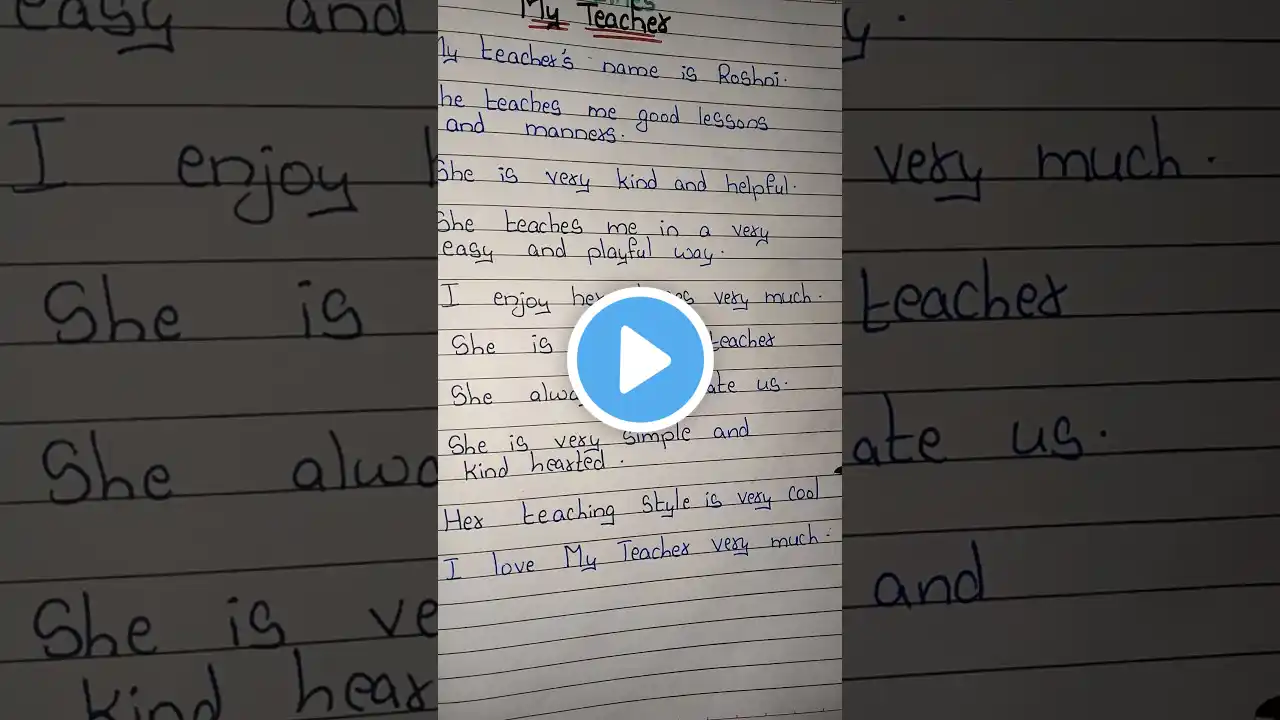 My Teacher
My teacher's name is Roshni.
he teaches me good lessons
and manners.
She is very kind and helpful.
She teaches me in a very
easy and playful way.
I enjoy her very much.
She is teacher
She us.
She is very simple and
kind hearted.
Her teaching style is very cool
I love My Teacher very much.
easy and
I enjoy very much.
She is teacher
She us.
She is and
kind